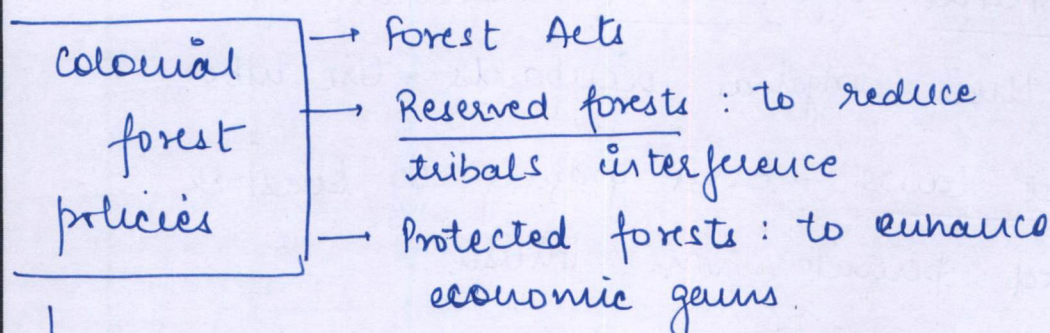 colonial
forest
policies
→ Forest Acts
→ Reserved forests : to reduce
tribals interference
→ Protected forests : to enhance
economic gains.